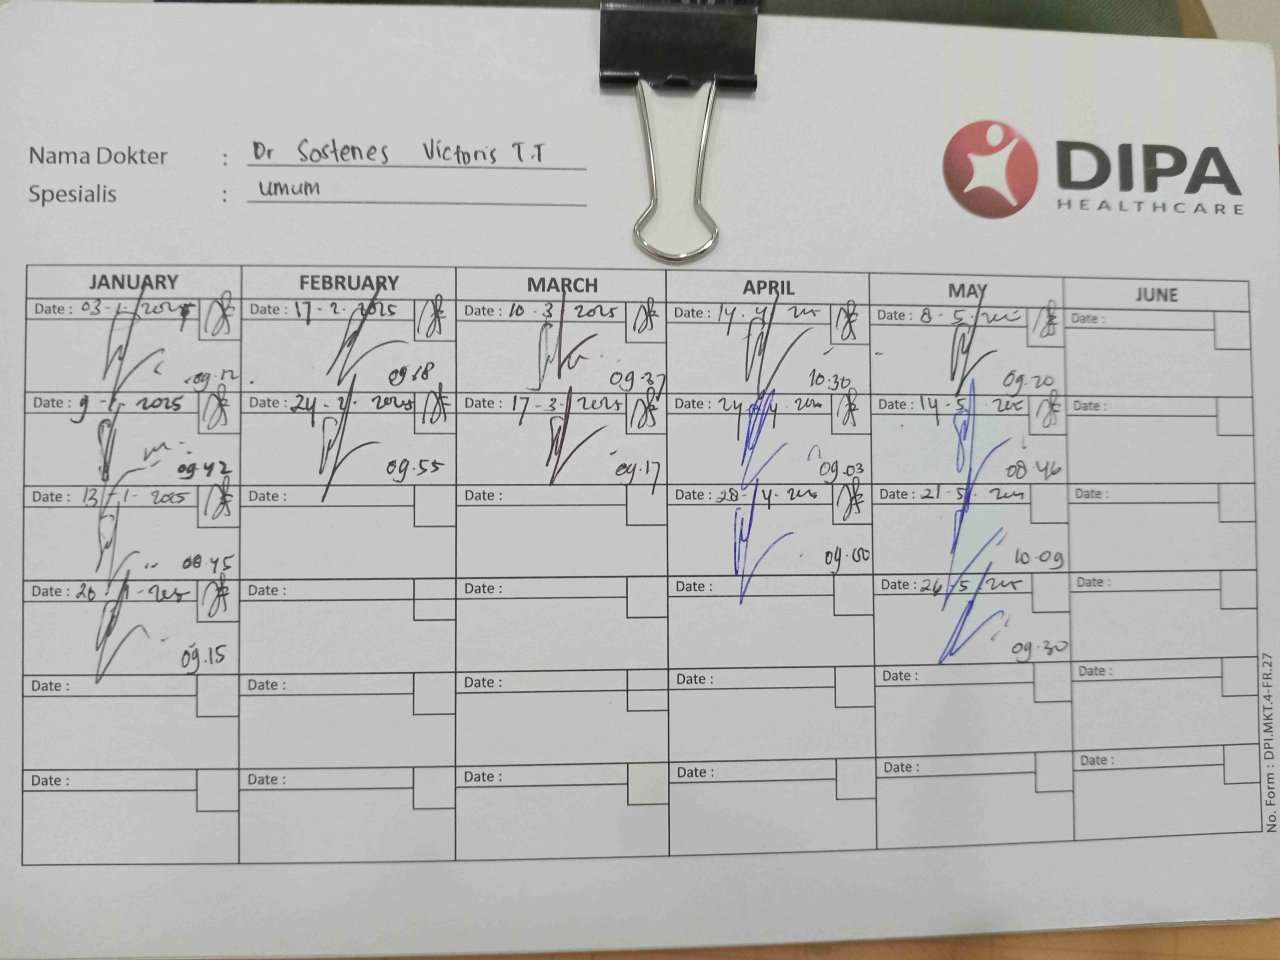 Nama Dokter : Dr Sostenes Victoris T.T
Spesialis : umum
DIPA
HEALTHCARE
JANUARY FEBRUARY MARCH APRIL MAY JUNE
Date : 03-1-2025 Date : 17-2-2025 Date : 10-3-2025 Date : 14-4- Date : 8-5- Date :
09.12 09.18 09.37 10.30 09.20
Date : 9-1-2025 Date : 24-2-2025 Date : 17-3-2025 Date : 24-4- Date : 14-5- Date :
09.42 09.55 09.17 09.03 08.46
Date : 13-1-2025 Date : Date : Date : 28-4- Date : 21-5- Date :
08.45 09.00 10.09
Date : 20-1- Date : Date : Date : Date : 26-5- Date :
09.15 09.30
Date : Date : Date : Date : Date : Date :
Date : Date : Date : Date : Date : Date :
No. Form : DPI.MKT.4-FR.27